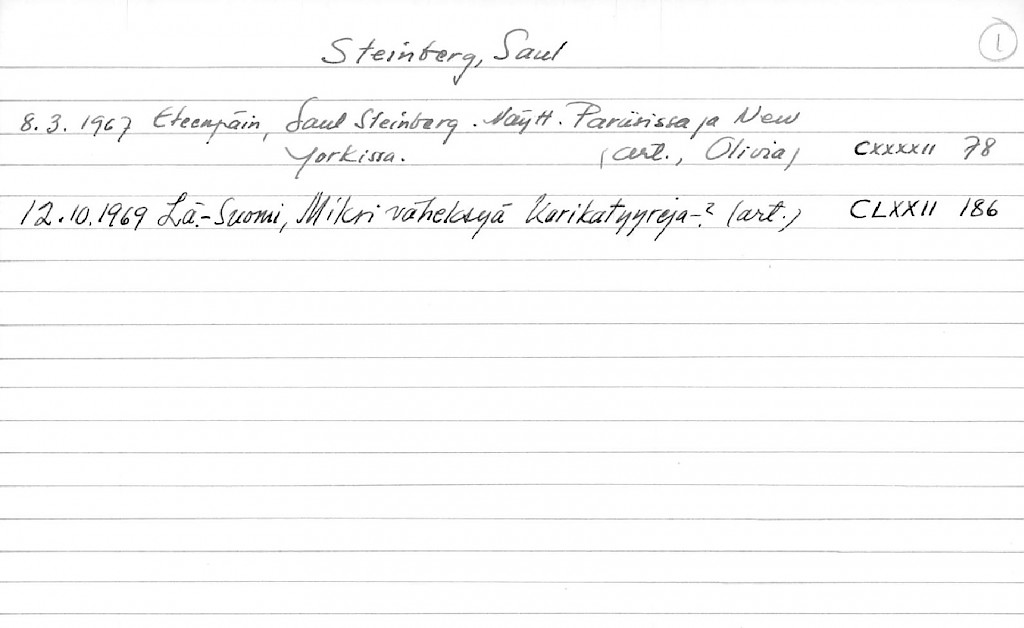 Steinberg, Saul
1
8.3.1967 Eteenpäin, Saul Steinberg. Näytt. Pariisissa ja New
Yorkissa. (art., Olivia) CXXXXII 78
12.10.1969 Lä-Suomi, Miksi väheksyä Karikatyyrejä-? (art.) CLXXII 186